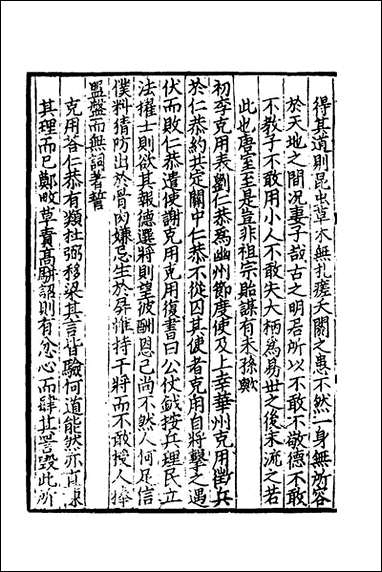 得其道則昆虫草木無扎瘥夭閼之患不然一身無所容
於天地之間况妻子哉古之明君所以不敢不敬德不敢
不教子不敢用小人不敢失大柄為易丗之後末流之若
此也唐室至是豈非祖宗貽謀有未孫歟
初李克用表劉仁恭為幽州節度使及上幸華州克用徴兵
於仁恭約共定關中仁恭不從囚其使者克用自將擊之遇
伏而敗仁恭遣使謝克用克用復書曰公仗鉞按兵理民立
法擢士則欲其報德選將則望彼酬恩己尚不然人何足信
僕料猜防出於骨肉嫌忌生於屏帷持干將而不敢授人捧
盟盤而無詞著誓
克用答仁恭有類杜弼移梁其言皆驗何道能然亦直
其理而已鄭畋草責高駢詔則有忿心而肆其詈毀此所